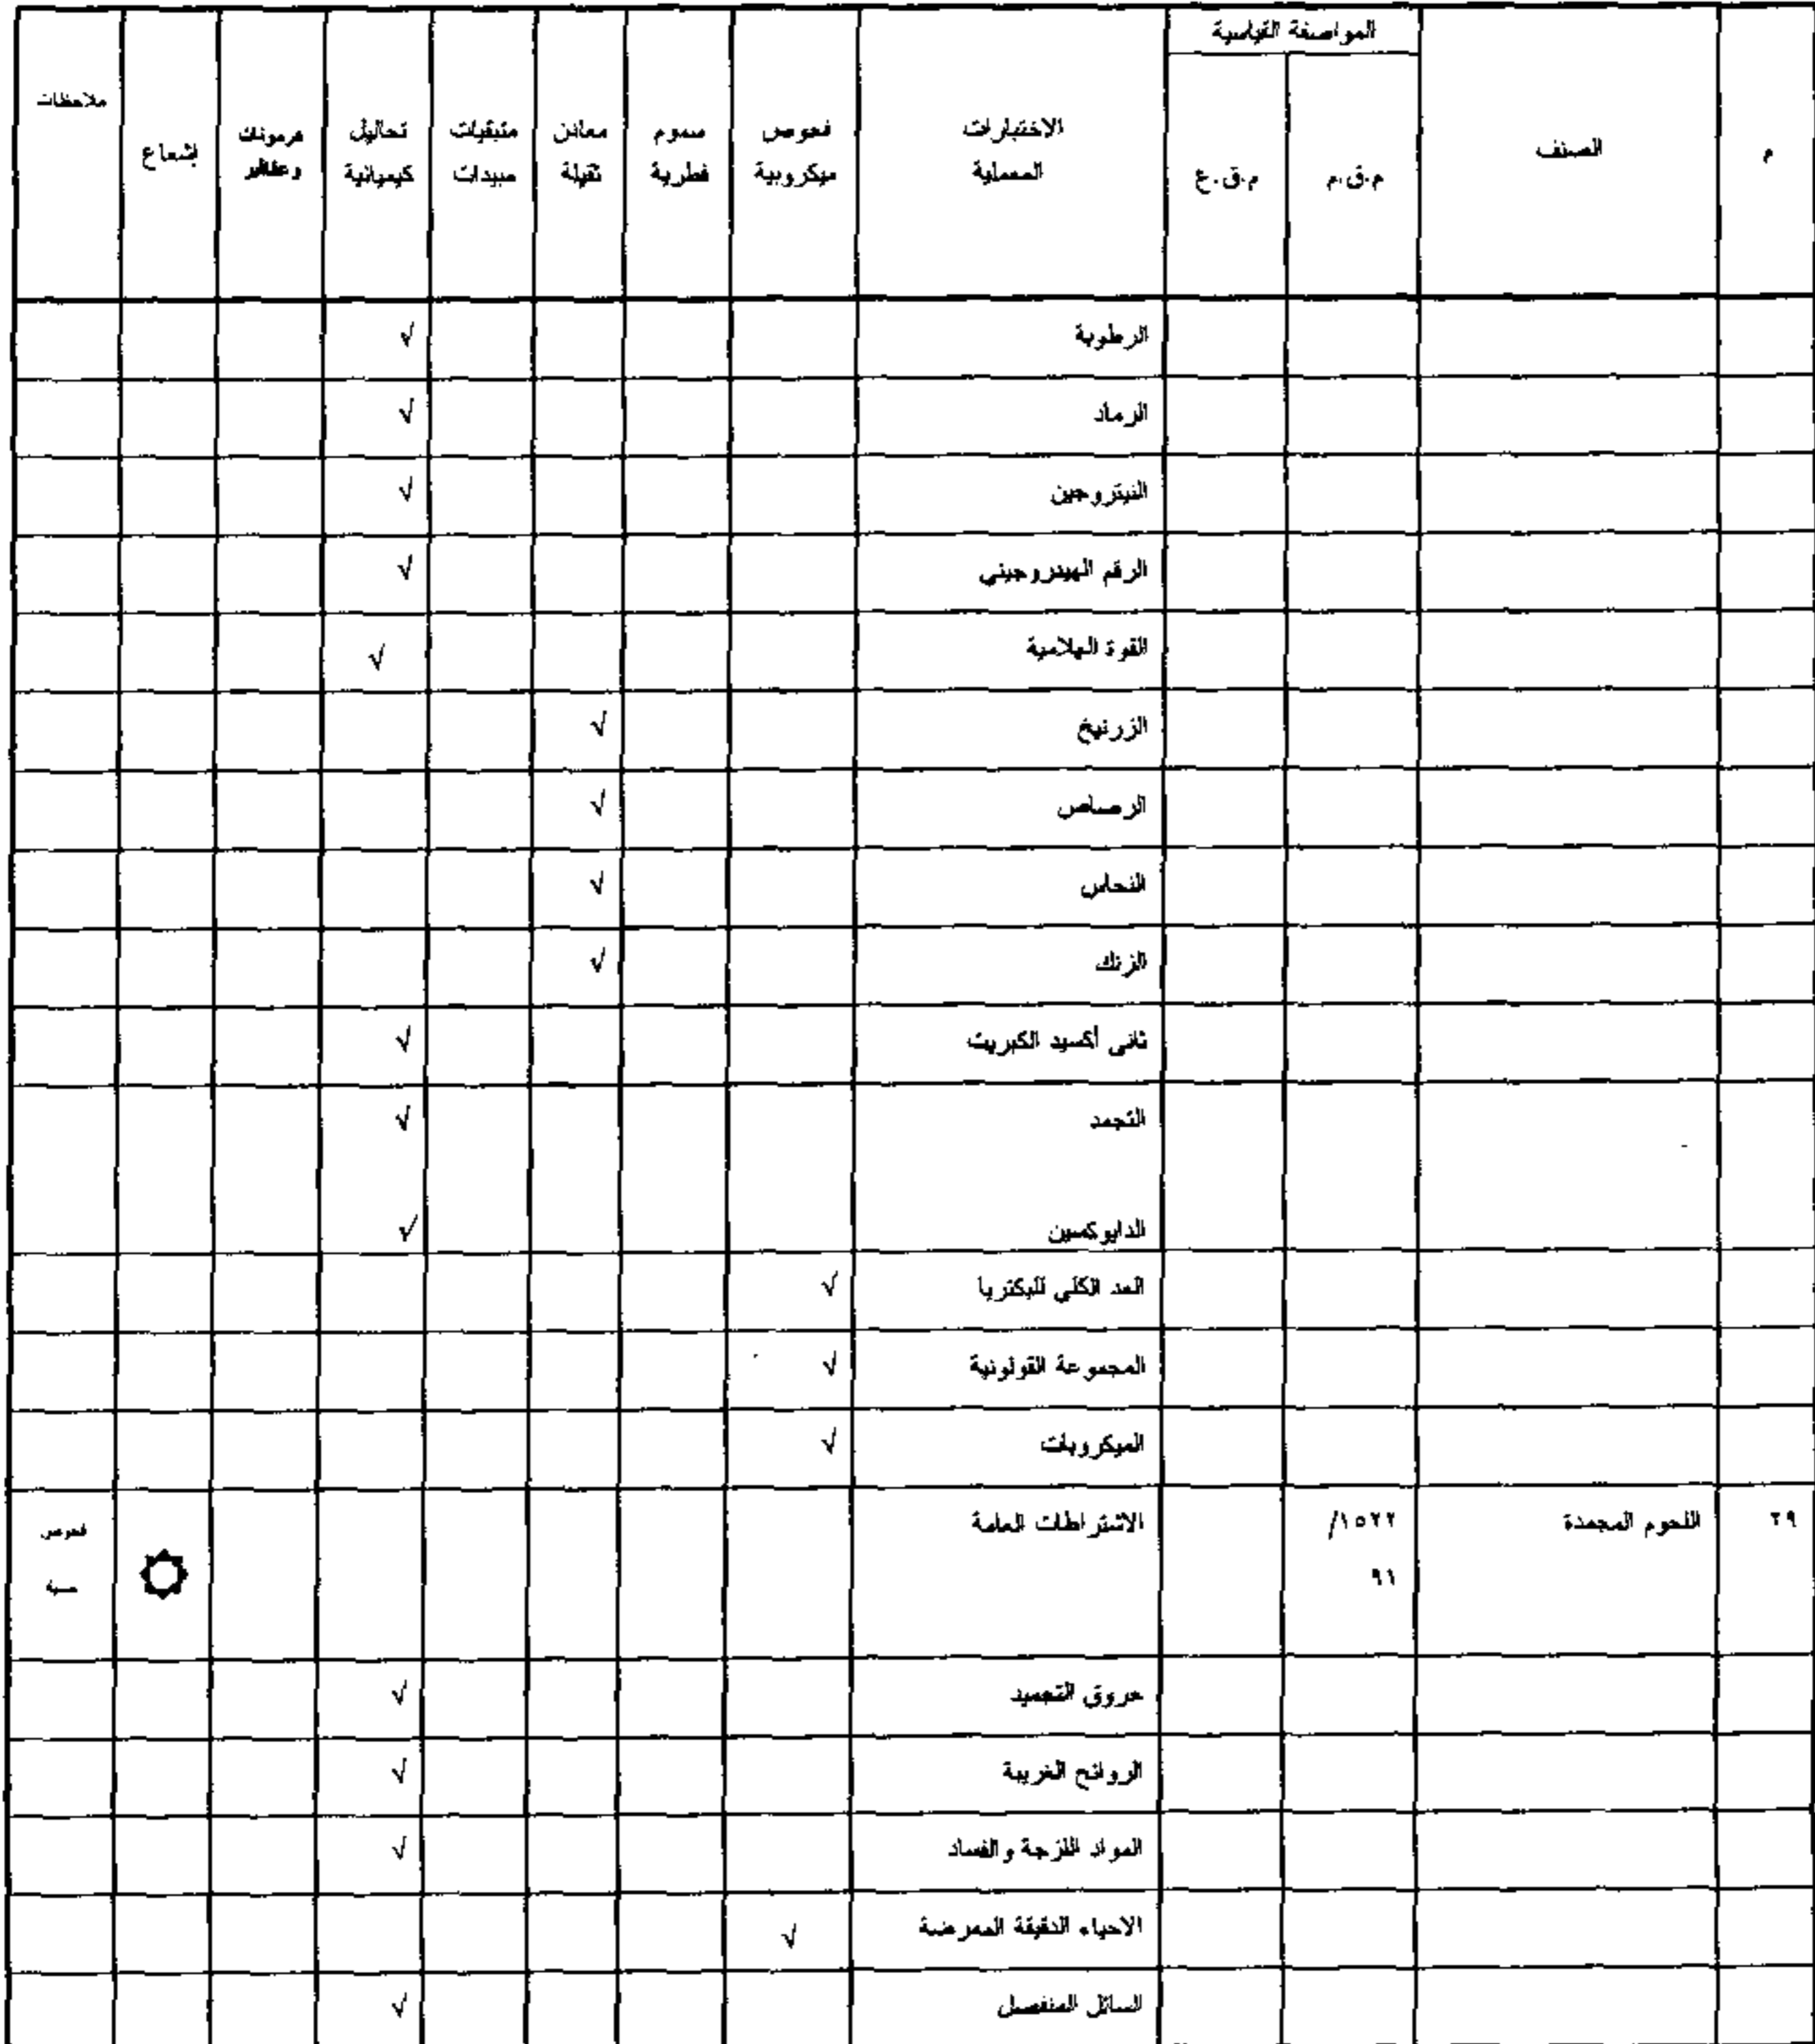 م الصنف المواصفة القياسية الاختبارات المعملية فحوص ميكروبية سموم فطرية معادن ثقيلة متبقيات مبيدات تحاليل كيميائية هرمونات وعقاقير إشعاع ملاحظات
م.ق.م م.ق.ع
الرطوبة √
الرماد √
النيتروجين √
الرقم الهيدروجيني √
القوة الهلامية √
الزرنيخ √
الرصاص √
النحاس √
الزنك √
ثانى أكسيد الكبريت √
التجمد √
الدايوكسين √
العد الكلي للبكتريا √
المجموعة القولونية √
الميكروبات √
٢٩ اللحوم المجمدة ١٥٢٢/ الاشتراطات العامة فحوص
٩١ حسية
حروق التجميد √
الروائح الغريبة √
المواد اللزجة والفساد √
الاحياء الدقيقة الممرضة √
السائل المنفصل √